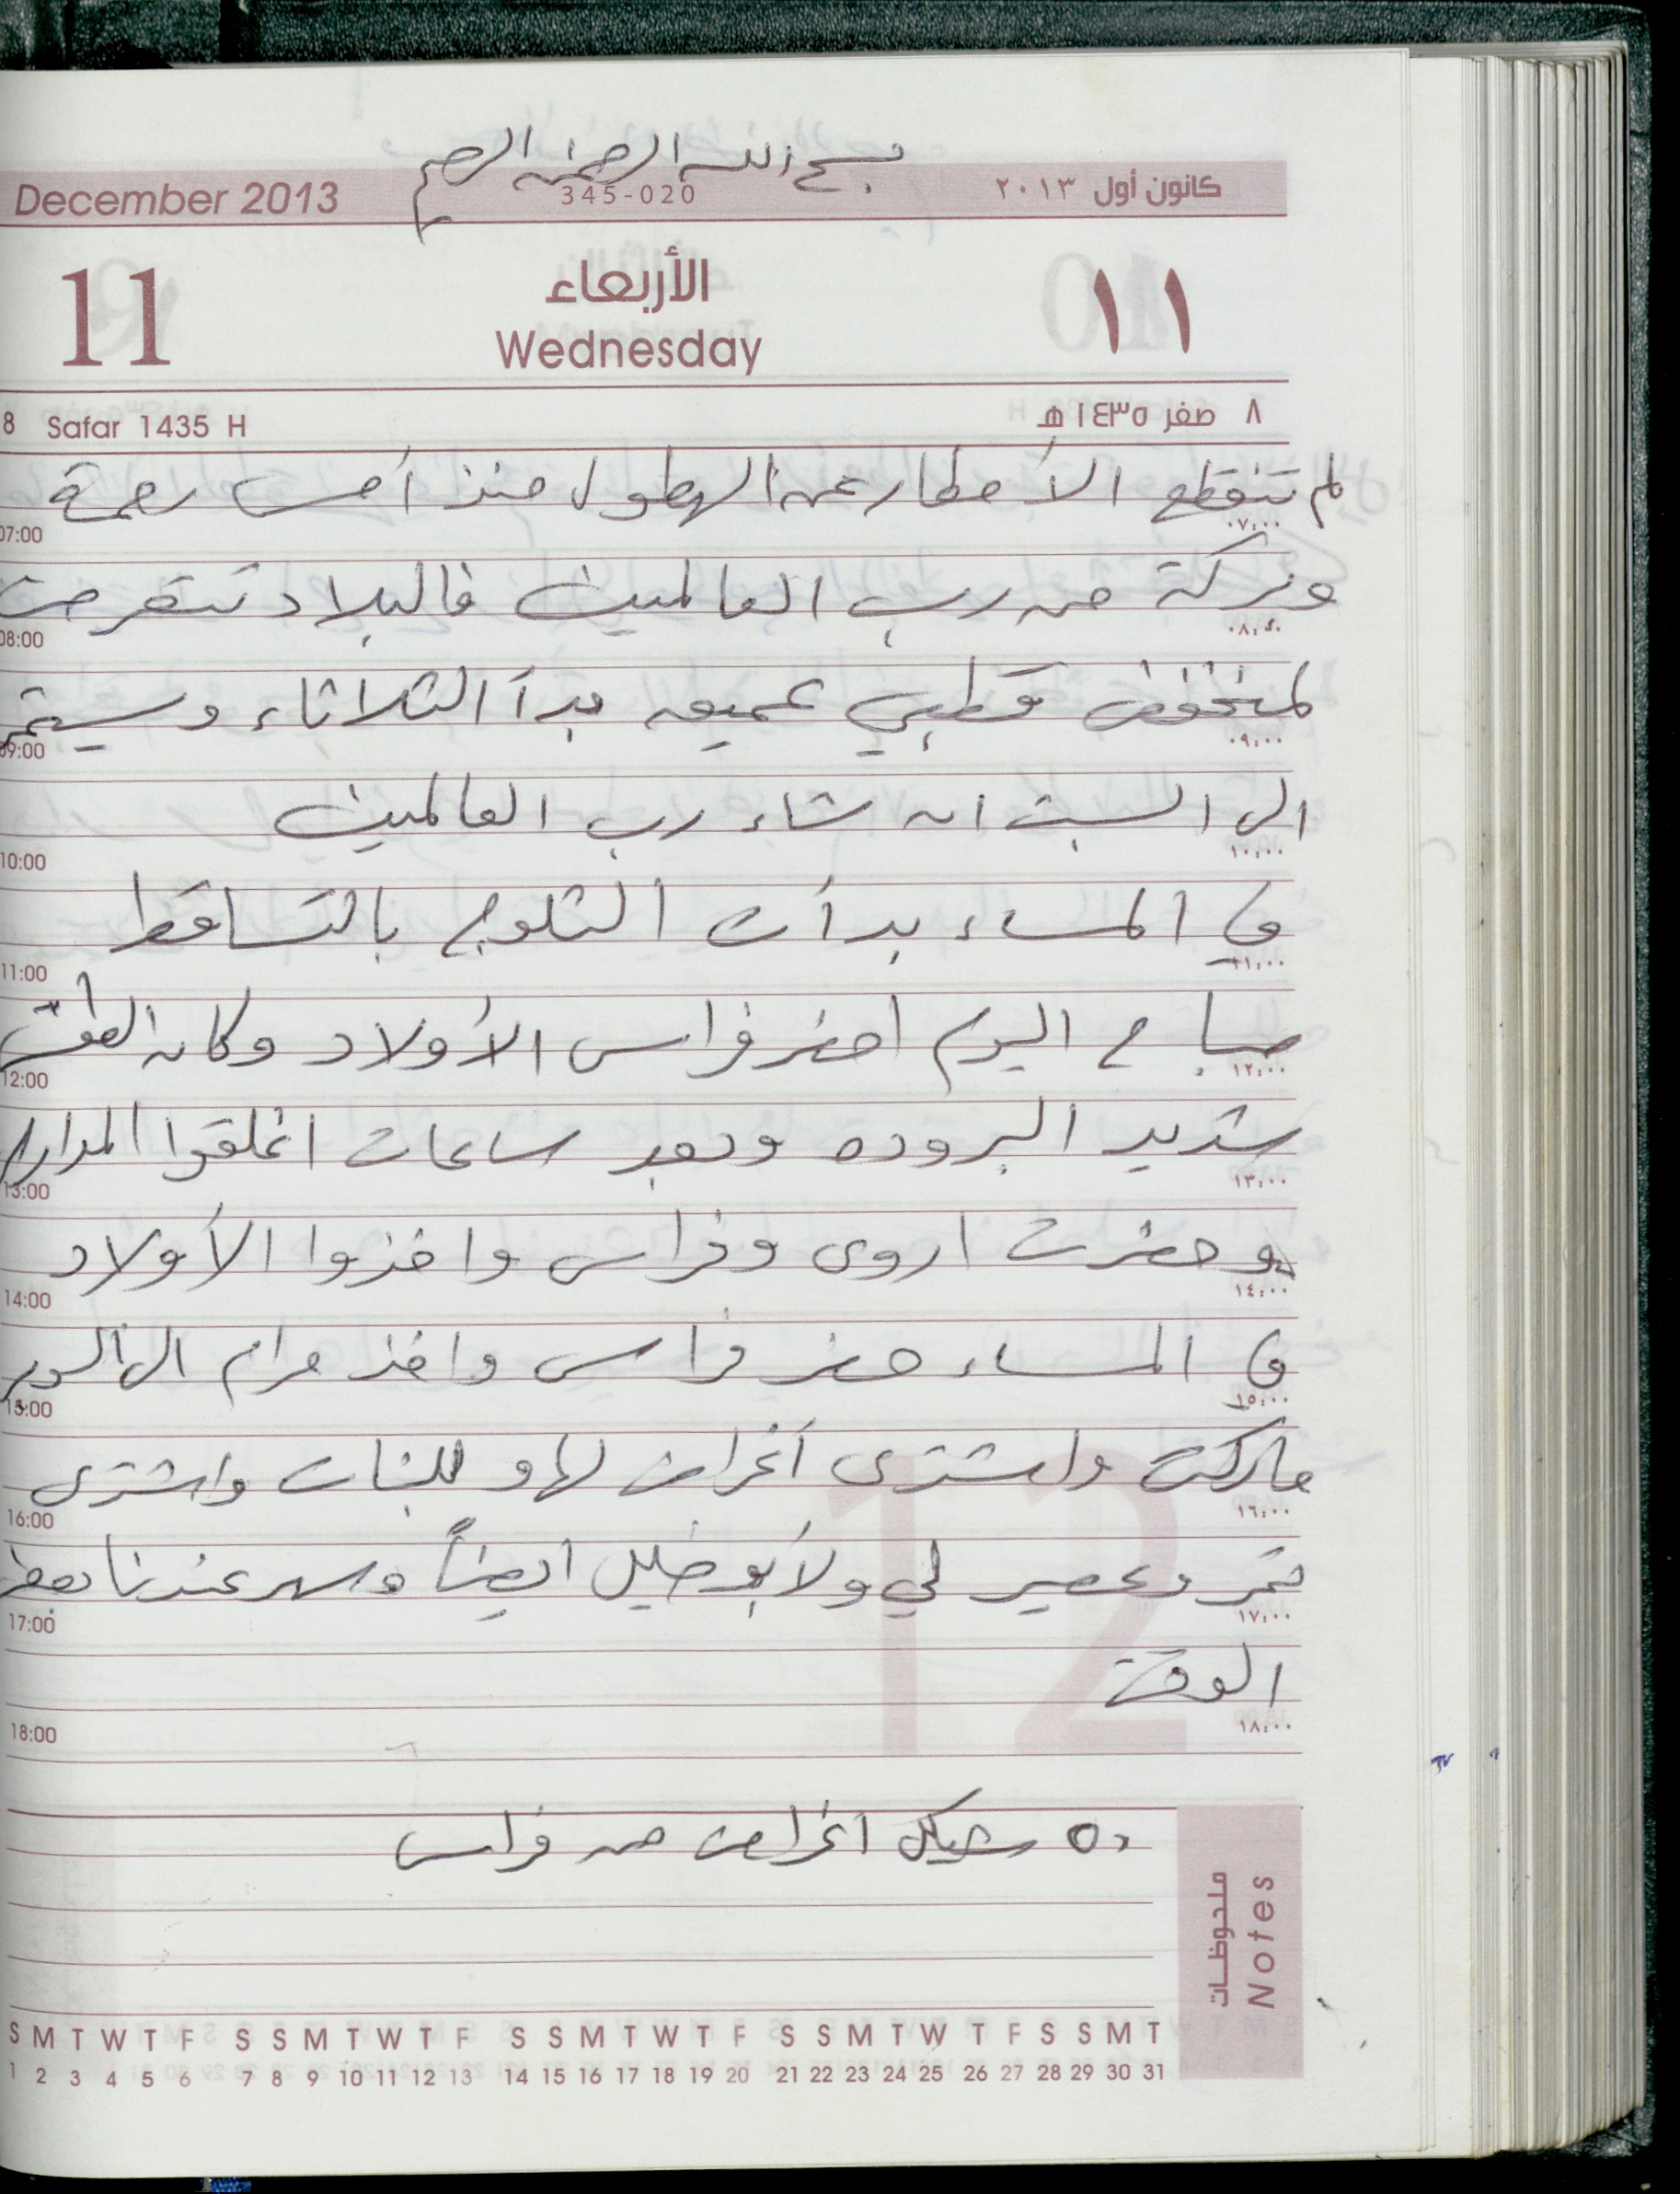 بسم الله الرحمن الرحيم
December 2013 345-020 كانون أول ٢٠١٣
11 الأربعاء ١١
Wednesday
8 Safar 1435 H ٨ صفر ١٤٣٥ هـ
لم تنقطع الأمطار عن الهطول منذ أمس رحمة
07:00 ٠٧:٠٠
وبركة من رب العالمين فالبلاد تتعرض
08:00 ٠٨:٠٠
لمنخفض قطبي عميق بدأ الثلاثاء وسيستمر
09:00 ٠٩:٠٠
الى السبت ان شاء رب العالمين
10:00 ١٠:٠٠
في المساء بدأت الثلوج بالتساقط
11:00 ١١:٠٠
صباح اليوم احضر فراس الأولاد وكان الطقس
12:00 ١٢:٠٠
شديد البروده وبعد ساعات اغلقوا المدارس
13:00 ١٣:٠٠
وحضرت اروى وفراس واخذوا الأولاد
14:00 ١٤:٠٠
في المساء حضر فراس واخذ مرام الى السوبر
15:00 ١٥:٠٠
ماركت واشترى أغراض لها وللبنات واشترى
16:00 ١٦:٠٠
تمر وعصير لي ولأبو خليل ايضاً وسهر عندنا بعض
17:00 ١٧:٠٠
الوقت
18:00 ١٨:٠٠
٥٠ شيكل اغراض من فراس
ملحوظات
Notes
S M T W T F S S M T W T F S S M T W T F S S M T W T F S S M T
1 2 3 4 5 6 7 8 9 10 11 12 13 14 15 16 17 18 19 20 21 22 23 24 25 26 27 28 29 30 31
12